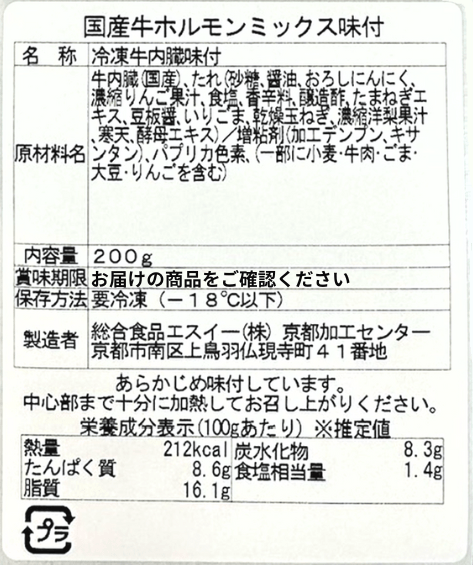 国産牛ホルモンミックス味付
名 称 冷凍牛内臓味付
原材料名 牛内臓(国産)、たれ(砂糖、醤油、おろしにんにく、
濃縮りんご果汁、食塩、香辛料、醸造酢、たまねぎエ
キス、豆板醤、いりごま、乾燥玉ねぎ、濃縮洋梨果汁
、寒天、酵母エキス)／増粘剤(加工デンプン、キサ
ンタン)、パプリカ色素、(一部に小麦・牛肉・ごま・
大豆・りんごを含む)
内容量 200g
賞味期限 お届けの商品をご確認ください
保存方法 要冷凍（－18℃以下）
製造者 総合食品エスイー(株) 京都加工センター
京都市南区上鳥羽仏現寺町41番地
あらかじめ味付しています。
中心部まで十分に加熱してお召し上がりください。
栄養成分表示(100gあたり) ※推定値
熱量 212kcal 炭水化物 8.3g
たんぱく質 8.6g 食塩相当量 1.4g
脂質 16.1g
プラ